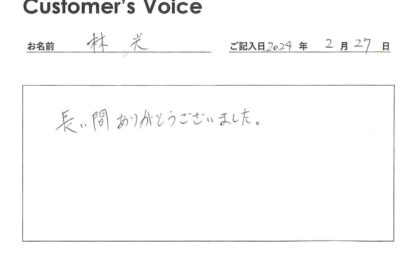 Customer's Voice
お名前 林 光 ご記入日2024年 2月27日
長い間ありがとうございました。